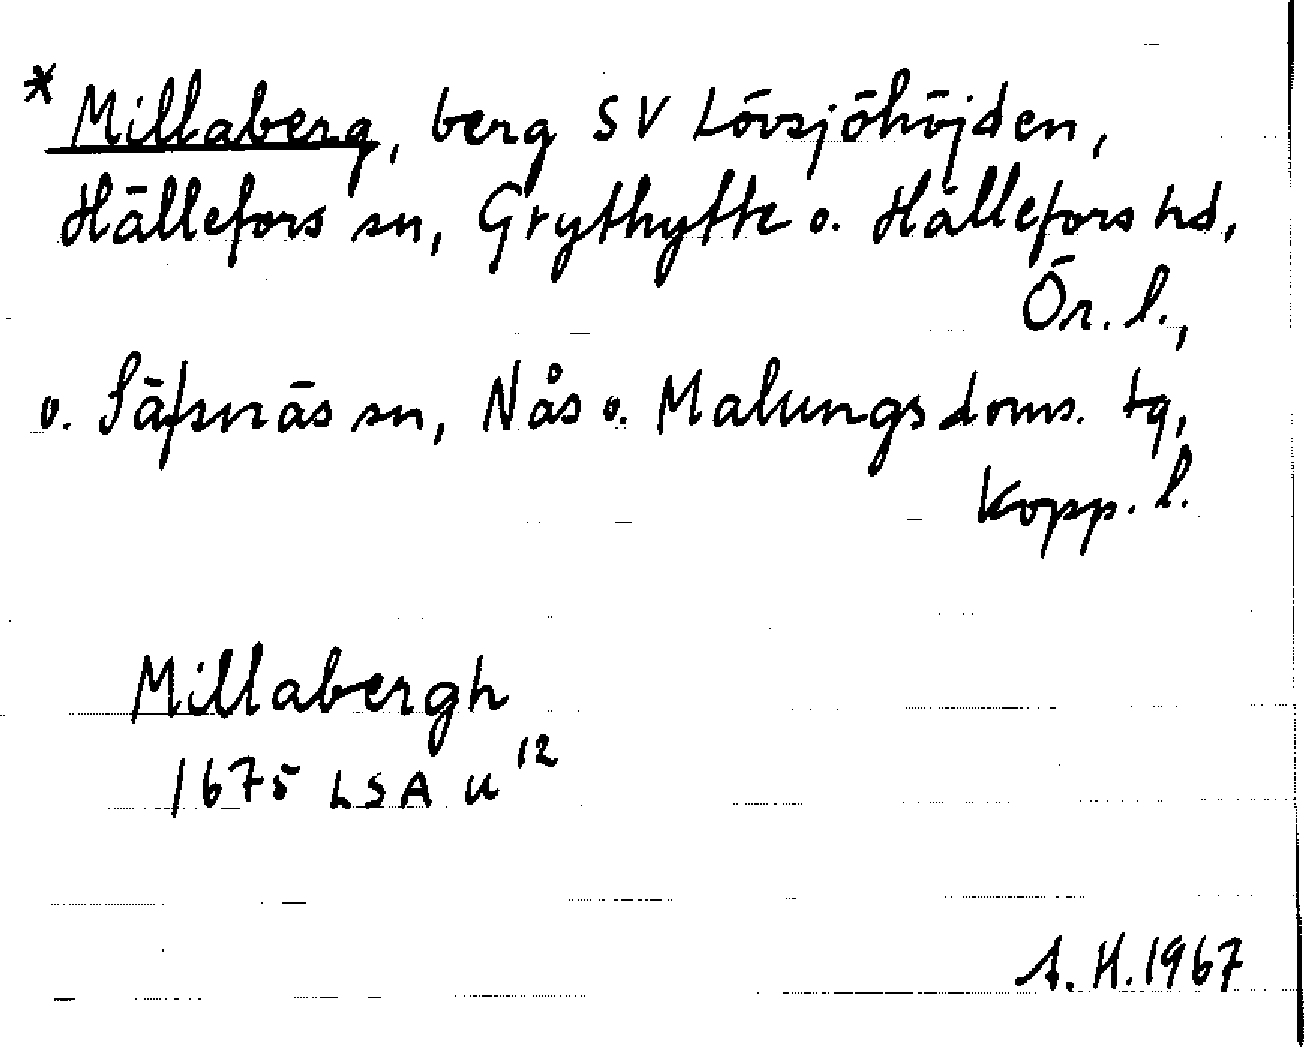 * Millaberg, berg SV Lövsjöhöjden,
Hällefors sn, Grythytte o. Hällefors hd,
Ör. l.,
o. Säfsnäs sn, Nås o. Malungs doms. tg,
Kopp. l.
Millabergh
1675 LSA U 12
A. H. 1967